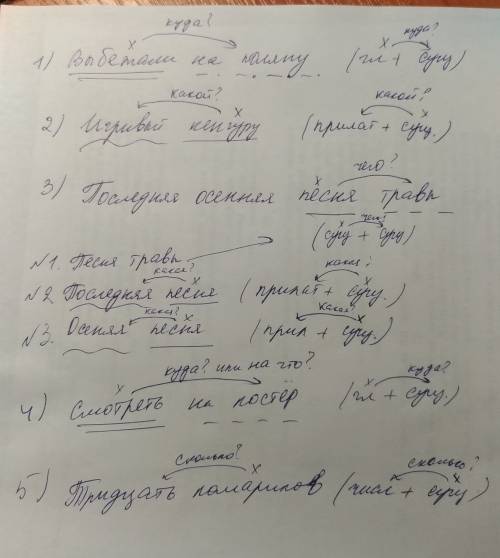 куда? куда?
х х
1) Выбежали на поляну (гл + сущ)
какой? какой?
х х
2) Игривый кенгуру (прилат + сущ.)
чего?
х
3) Последняя осенняя песня травы
х чего?
(сущ + сущ)
№1. Песня травы
какая? х какая? х
№2 Последняя песня (прилат + сущ.)
какая? х какая? х
№3. Осеняя песня (прил + сущ.)
куда? или на что? куда?
х х
4) Смотреть на костёр (гл + сущ.)
сколько? сколько?
х х
5) Тридцать комариков (числ + сущ)